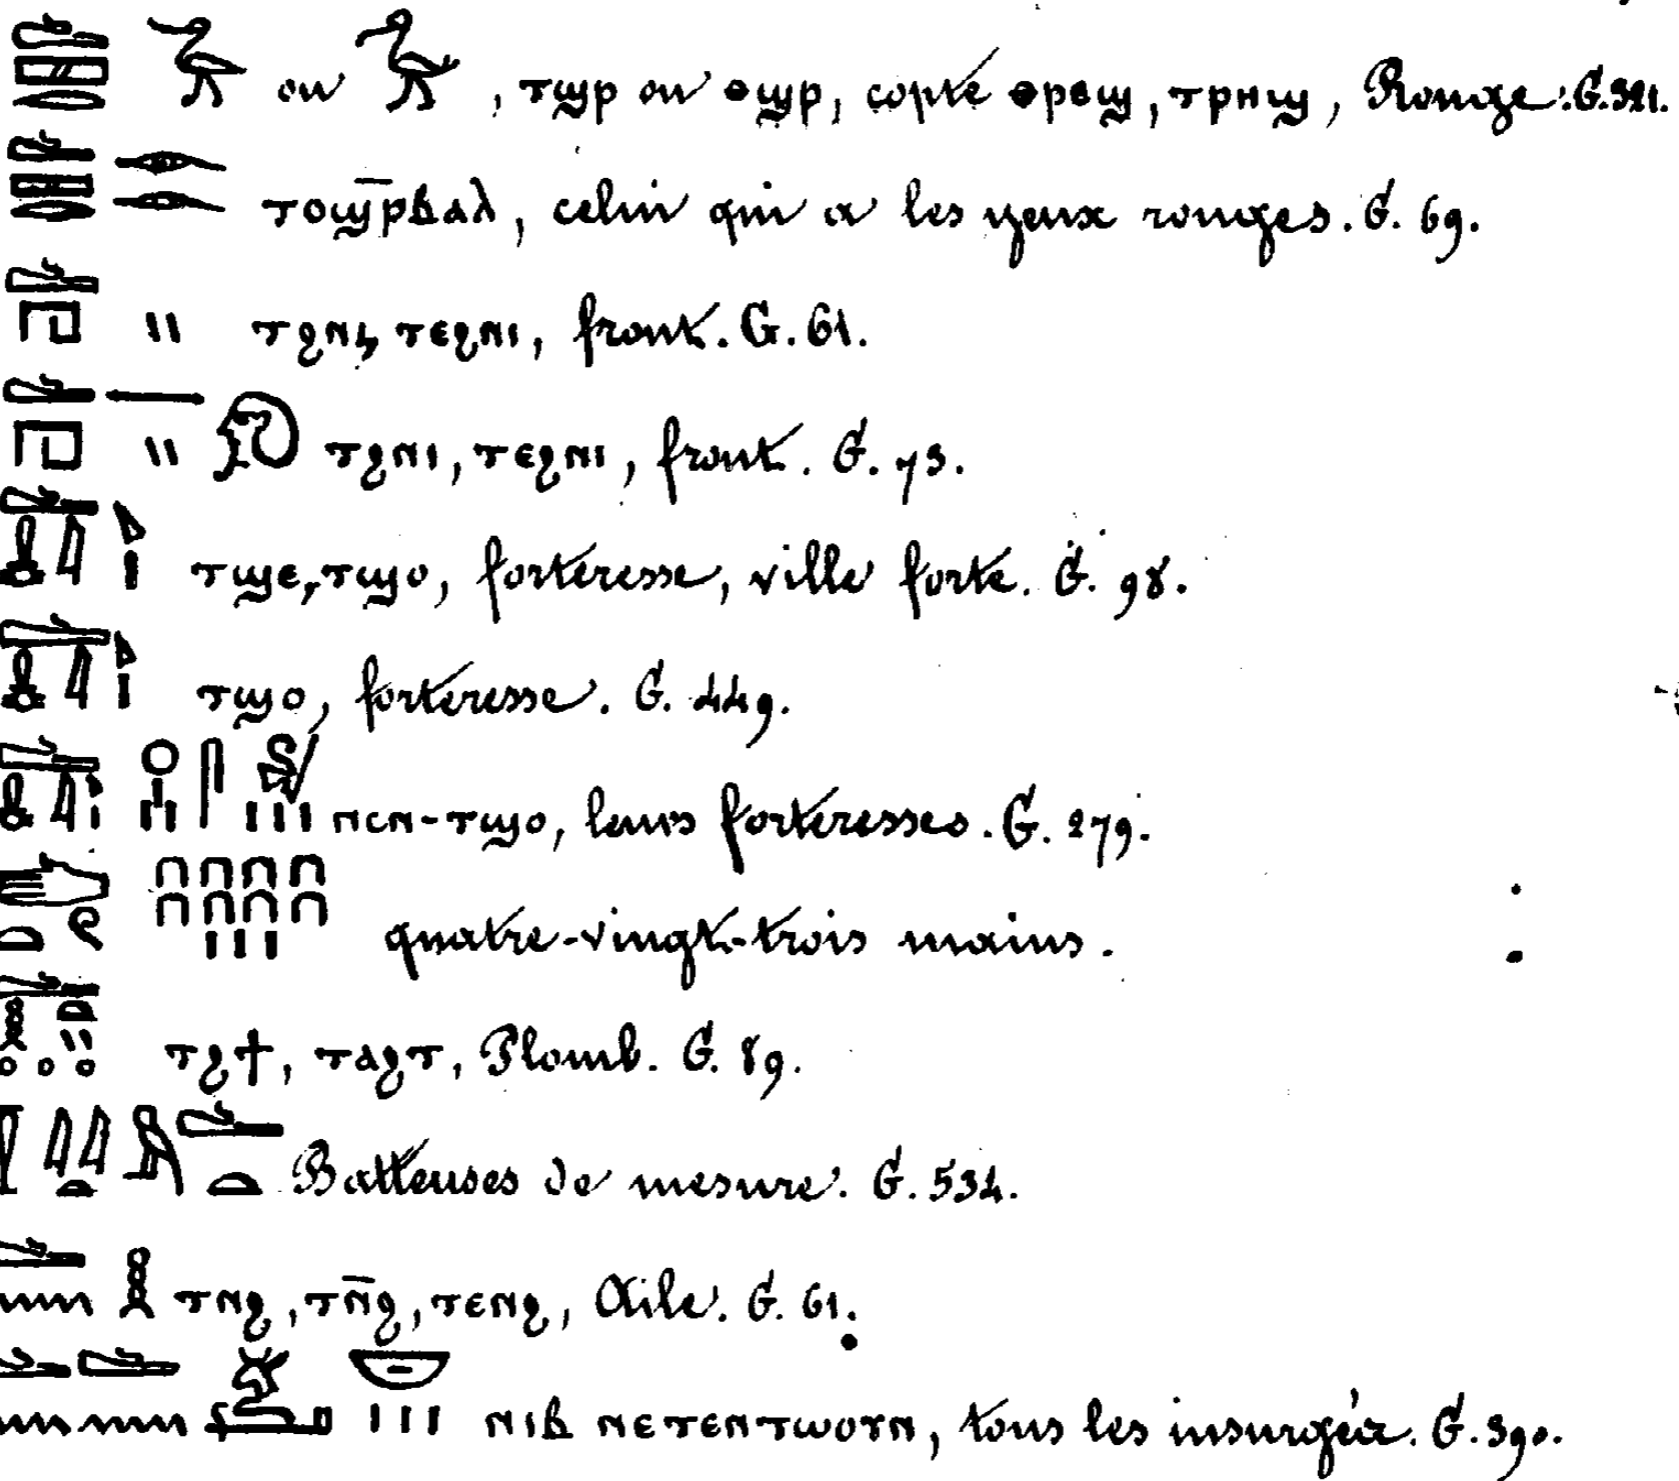 ou , ⲧϣⲣ ou ⲑϣⲣ, copte ⲑⲣⲉϣ, ⲧⲣⲏϣ, Rouge. G. 321.
ⲧⲟϣⲣ̄ⲃⲁⲗ, celui qui a les yeux rouges. G. 69.
ⲧϩⲛⲓ, ⲧⲉϩⲛⲓ, front. G. 61.
ⲧϩⲛⲓ, ⲧⲉϩⲛⲓ, front. G. 73.
ⲧϣⲉ, ⲧϣⲟ, forteresse, ville forte. G. 98.
ⲧϣⲟ, forteresse. G. 449.
ⲛⲥⲛ-ⲧϣⲟ, leurs forteresses. G. 279.
quatre-vingt-trois mains.
ⲧϩϯ, ⲧⲁϩⲧ, Plomb. G. 89.
Batteuses de mesure. G. 534.
ⲧⲛϩ, ⲧⲛ̄ϩ, ⲧⲉⲛϩ, Aile. G. 61.
ⲛⲓⲃ ⲛⲉⲧⲉⲛⲧⲱⲟⲩⲛ, tous les insurgés. G. 390.